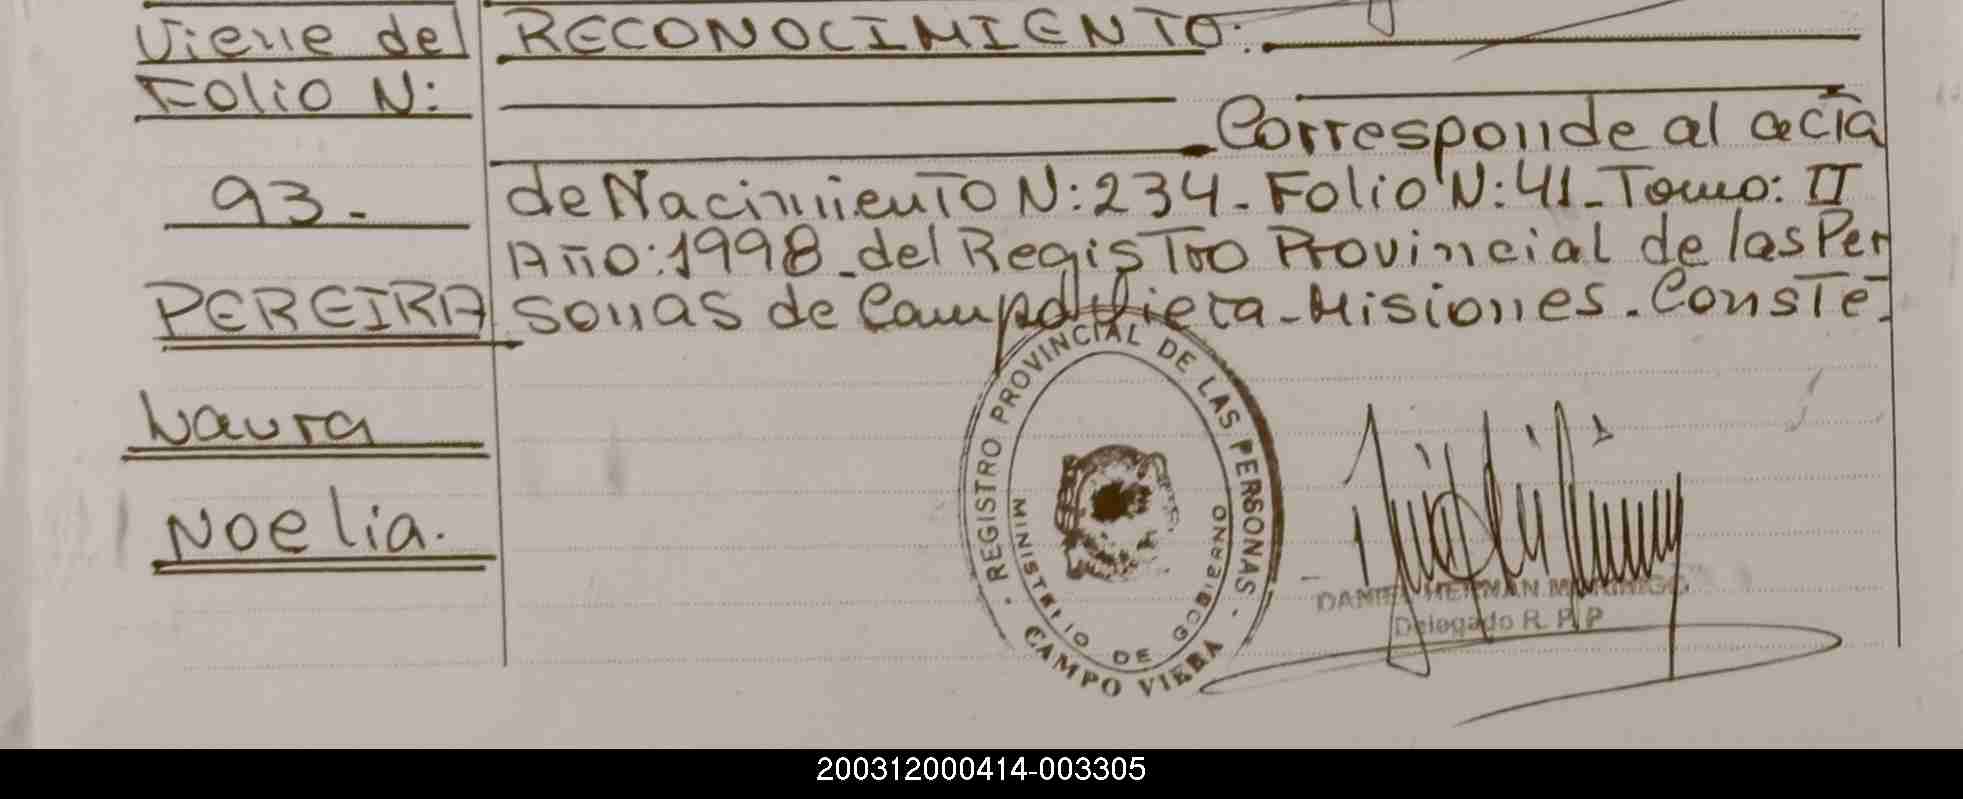 Viene del
Folio N:
93.-
PEREIRA
Laura
Noelia.
RECONOCIMIENTO:
Corresponde al acta
de Nacimiento N:234-Folio N:41-Tomo: II
Año:1998-del Registro Provincial de las Per
sonas de Campo Viera-Misiones.Conste-
· REGISTRO PROVINCIAL DE LAS PERSONAS ·
MINISTERIO DE GOBIERNO
CAMPO VIERA
DANIEL HERNAN
Delegado R. P. P
200312000414-003305